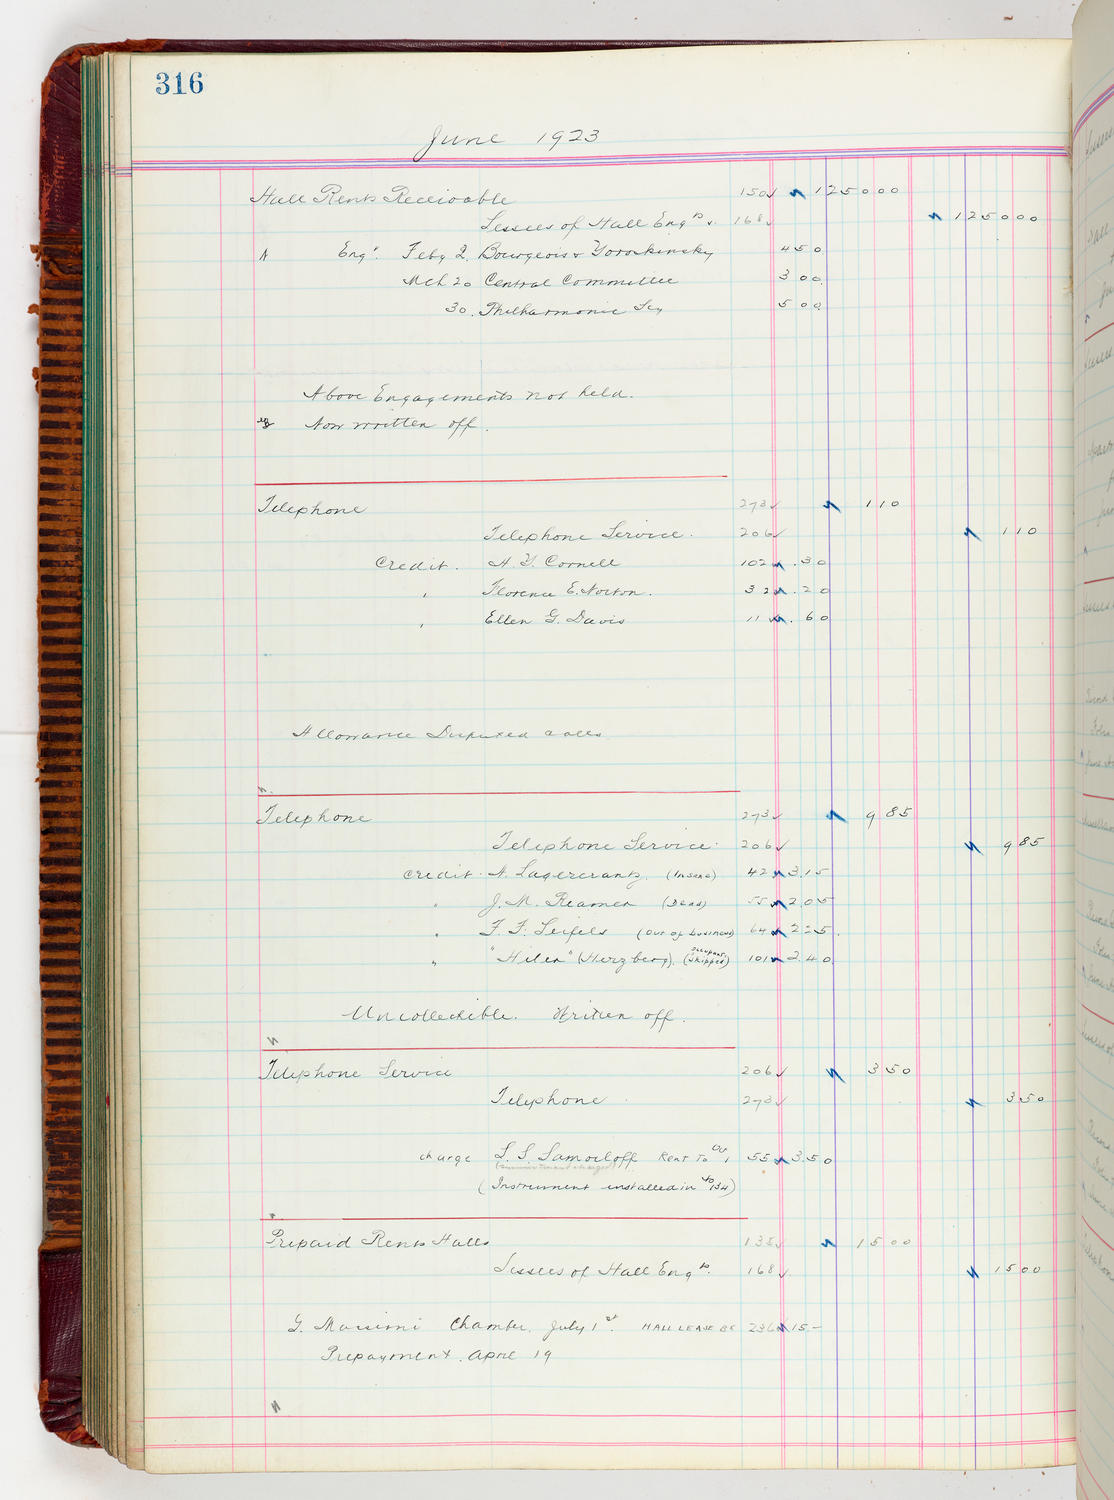 316
June 1923
Hall Rents Receivable 150 ✓ 1250 00
Lessees of Hall Eng ts. 168 ✓ 1250 00
Eng ts. Feby 2. Bourgeois & 450
Mch 20 Central Committee 300
30. Philharmonic Scy 500
Above Engagements not held.
Now written off.
Telephone 273 ✓ 1 10
Telephone Service. 206 ✓ 1 10
Credit. H. Y. Cornell 102 .30
" Florence E. Norton. 32 .20
" Ellen G. Davis 11 .60
Allowance Disputed calls
Telephone 273 ✓ 9 85
Telephone Service. 206 ✓ 9 85
Credit. H. Lagercrantz. (Insane) 42 3.15
" J. M. Reamer (Dead) 55 2.05
" F. F. Seifels (out of business) 64 2 25.
" "Hilen" (Herzberg). (occupant skipped) 101 2.40
Uncollectible. Written off.
Telephone Service 206 ✓ 3 50
Telephone 273 ✓ 3 50
charge L. S. Samoiloff Rent to Oct 1 55 3.50
(Instrument installed in )
Prepaid Rents Halls 135 ✓ 15 00
Lessees of Hall Eng ts. 168 ✓ 15 00
G. Massimi Chamber, July 1st. HALL LEASE BK 236 15.–
Prepayment. April 19